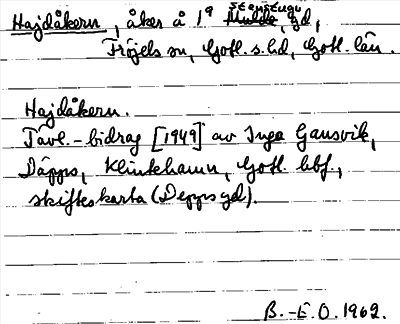 Hajdåkern, åker å 1⁹ Stenstugu gd,
Fröjels sn, Gotl. s. hd, Gotl. län.
Hajdåkern.
Tävl.-bidrag [1949] av Inga Gansvik,
Däpps, Klintehamn, Gotl. bbf.,
skifteskarta (Depps gd).
B.-E.O. 1962.